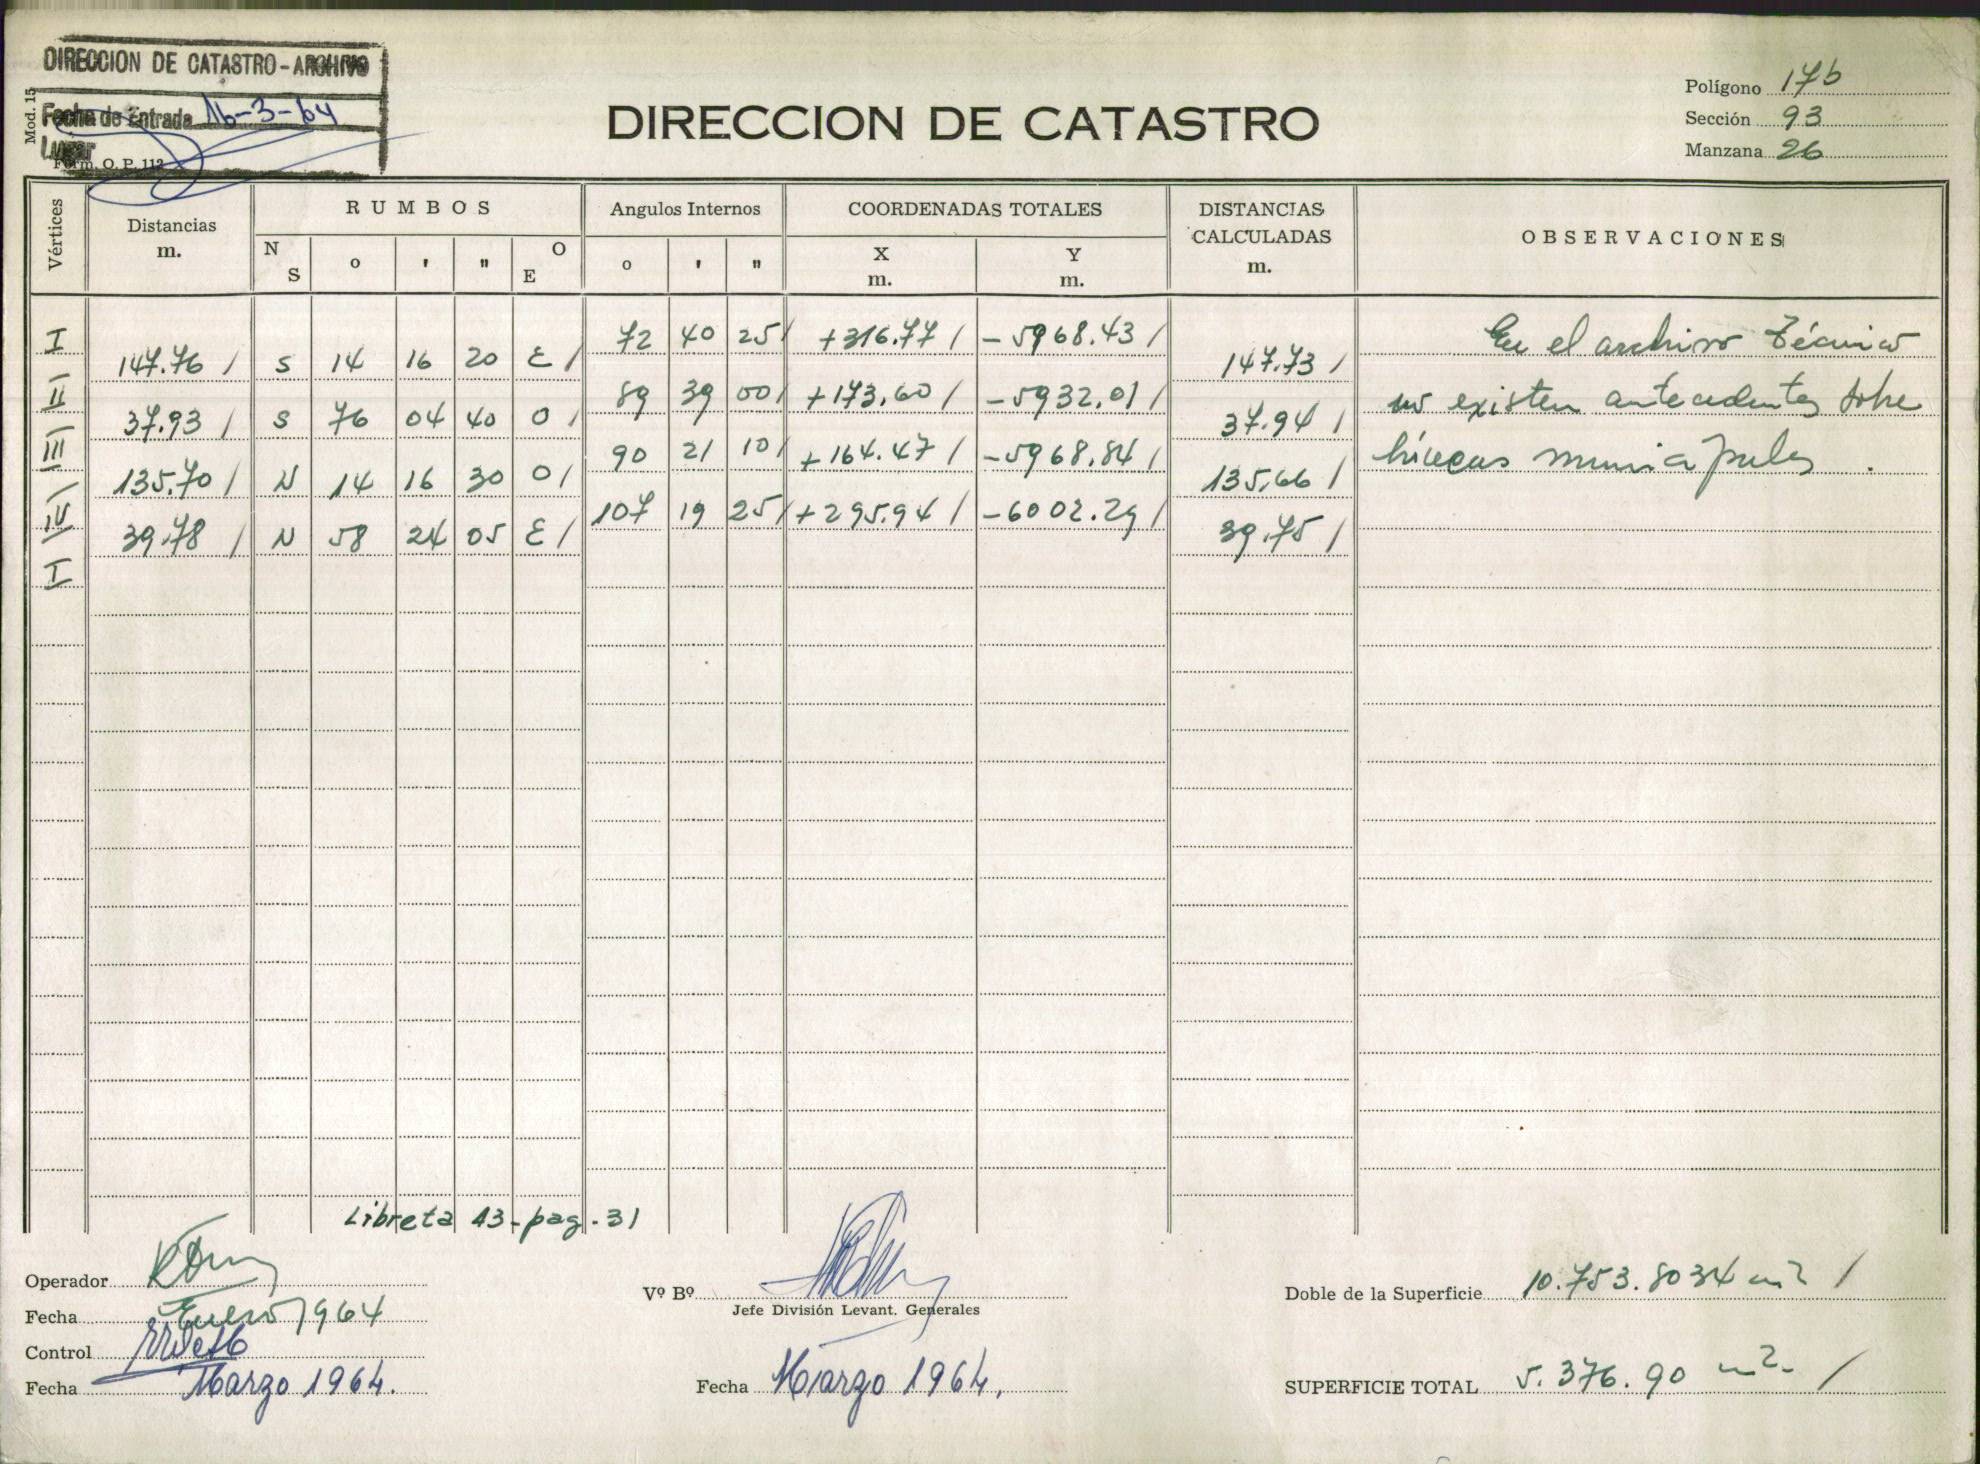 DIRECCION DE CATASTRO - ARCHIVO
Fecha de Entrada 16-3-64
Lugar
Mod. 15
Form. O. P. 112
DIRECCION DE CATASTRO
Polígono 176
Sección 93
Manzana 26
Vértices
Distancias
m.
RUMBOS
N S ° ' " O E
Angulos Internos
° ' "
COORDENADAS TOTALES
X
m.
Y
m.
DISTANCIAS
CALCULADAS
m.
OBSERVACIONES
I 72 40 25 / +316.77 / -5968.43 /
147.76 / S 14 16 20 E / 147.73 /
II 89 39 00 / +173.60 / -5932.01 /
37.93 / S 76 04 40 O / 37.94 /
III 90 21 10 / +164.47 / -5968.84 /
135.70 / N 14 16 30 O / 135.66 /
IV 107 19 25 / +295.94 / -6002.29 /
39.78 / N 58 24 05 E / 39.75 /
I
En el archivo técnico
no existen antecedentes sobre
líneas municipales .
Libreta 43-pag-31
Operador
Fecha Enero 1964
Control
Fecha Marzo 1964.
Vº Bº
Jefe División Levant. Generales
Fecha Marzo 1964.
Doble de la Superficie 10.753.8034 m2 /
SUPERFICIE TOTAL 5.376.90 m2. /